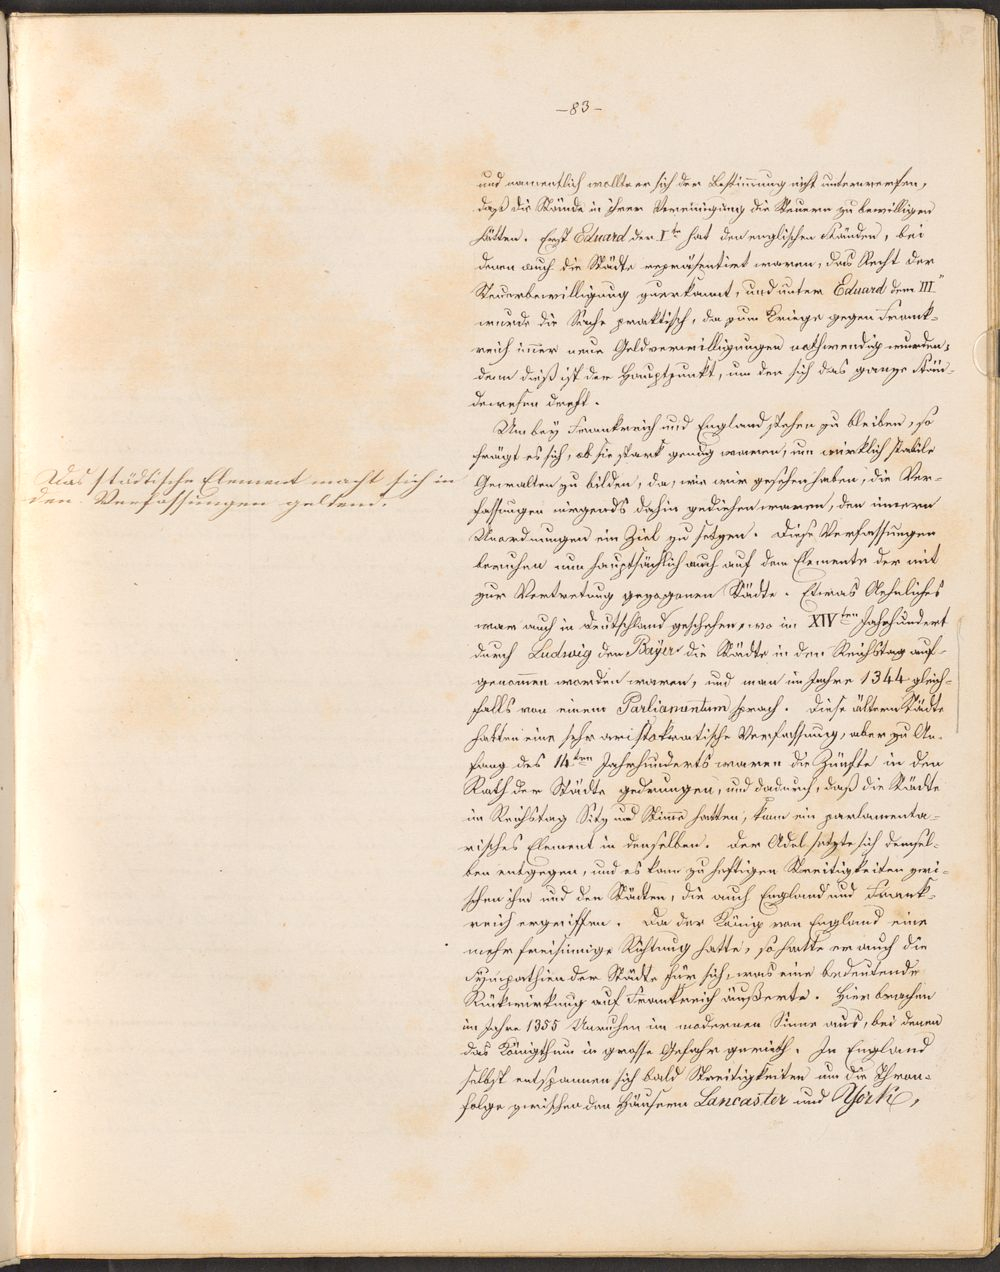 -83-
und namentlich wollte er sich der Bestimmung nicht unterwerfen,
daß die Stände in ihrer Vereinigung die Steuern zu bewilligen
hätten. Erst Eduard der Ite hat den englischen Ständen, bei
denen auch die Städte repräsentirt waren, das Recht der
Steuerbewilligung zuerkannt, und unter Eduard dem III.
wurde die Sache praktisch, da zum Kriege gegen Frank-
reich immer neue Geldverwilligungen nothwendig wurden;
denn dieß ist der Hauptpunkt, um den sich das ganze Stän-
dewesen dreht.
Um bey Frankreich und England stehen zu bleiben, so
frägt es sich, ob sie stark genug waren, um wirklich stabile
Das städtische Element macht sich in
den Verfassungen geltend.
Gewalten zu bilden, da, wie wir gesehen haben, die Ver-
fassungen nirgends dahin gediehen waren, den innern
Unordnungen ein Ziel zu setzen. Diese Verfassungen
beruhen nun hauptsächlich auch auf dem Elemente der mit
zur Vertretung gezogenen Städte. Etwas Aehnliches
war auch in Deutschland geschehen, wo im XIVten Jahrhundert
durch Ludwig den Bayer die Städte in den Reichstag auf-
genommen worden waren, und man im Jahre 1344 gleich-
falls von einem Parliamentum sprach. Diese ältern Städte
hatten eine sehr aristokratische Verfassung, aber zu An-
fang des 14ten Jahrhunderts waren die Zünfte in den
Rath der Städte gedrungen, und dadurch, daß die Städte
im Reichstag Sitz und Stimme hatten, kam ein parlamenta-
risches Element in denselben. Der Adel setzte sich demsel-
ben entgegen, und es kam zu heftigen Streitigkeiten zwi-
schen ihm und den Städten, die auch England und Frank-
reich ergriffen. Da der König von England eine
mehr freisinnige Richtung hatte, so hatte er auch die
Sympathien der Städte für sich, was eine bedeutende
Rückwirkung auf Frankreich äußerte. Hier brachen
im Jahre 1355 Unruhen im modernen Sinne aus, bei denen
das Königthum in grosse Gefahr gerieth. In England
selbst entspannen sich bald Streitigkeiten um die Thron-
folge zwischen den Häusern Lancaster und York,